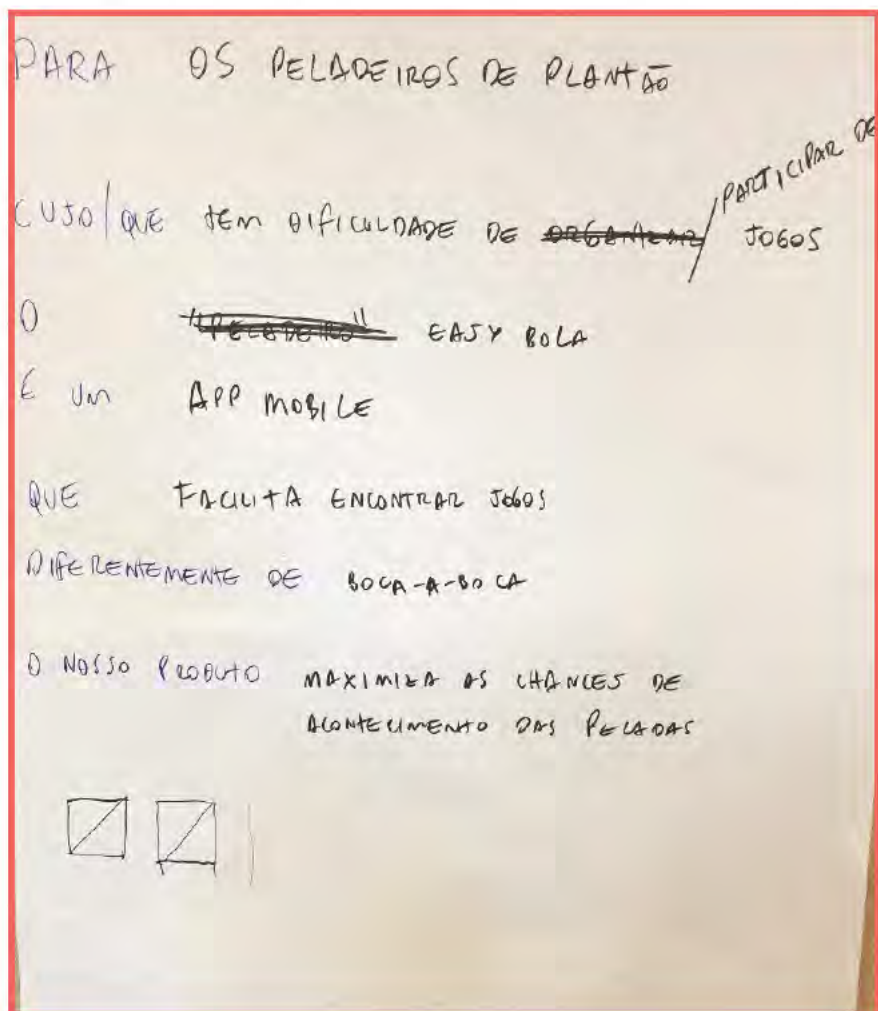 PARA OS PELADEIROS DE PLANTÃO
CUJO/QUE TEM DIFICULDADE DE ORGANIZAR / PARTICIPAR DE JOGOS
O "PELADEIRO" EASY BOLA
É UM APP MOBILE
QUE FACILITA ENCONTRAR JOGOS
DIFERENTEMENTE DE BOCA-A-BOCA
O NOSSO PRODUTO MAXIMIZA AS CHANCES DE
ACONTECIMENTO DAS PELADAS